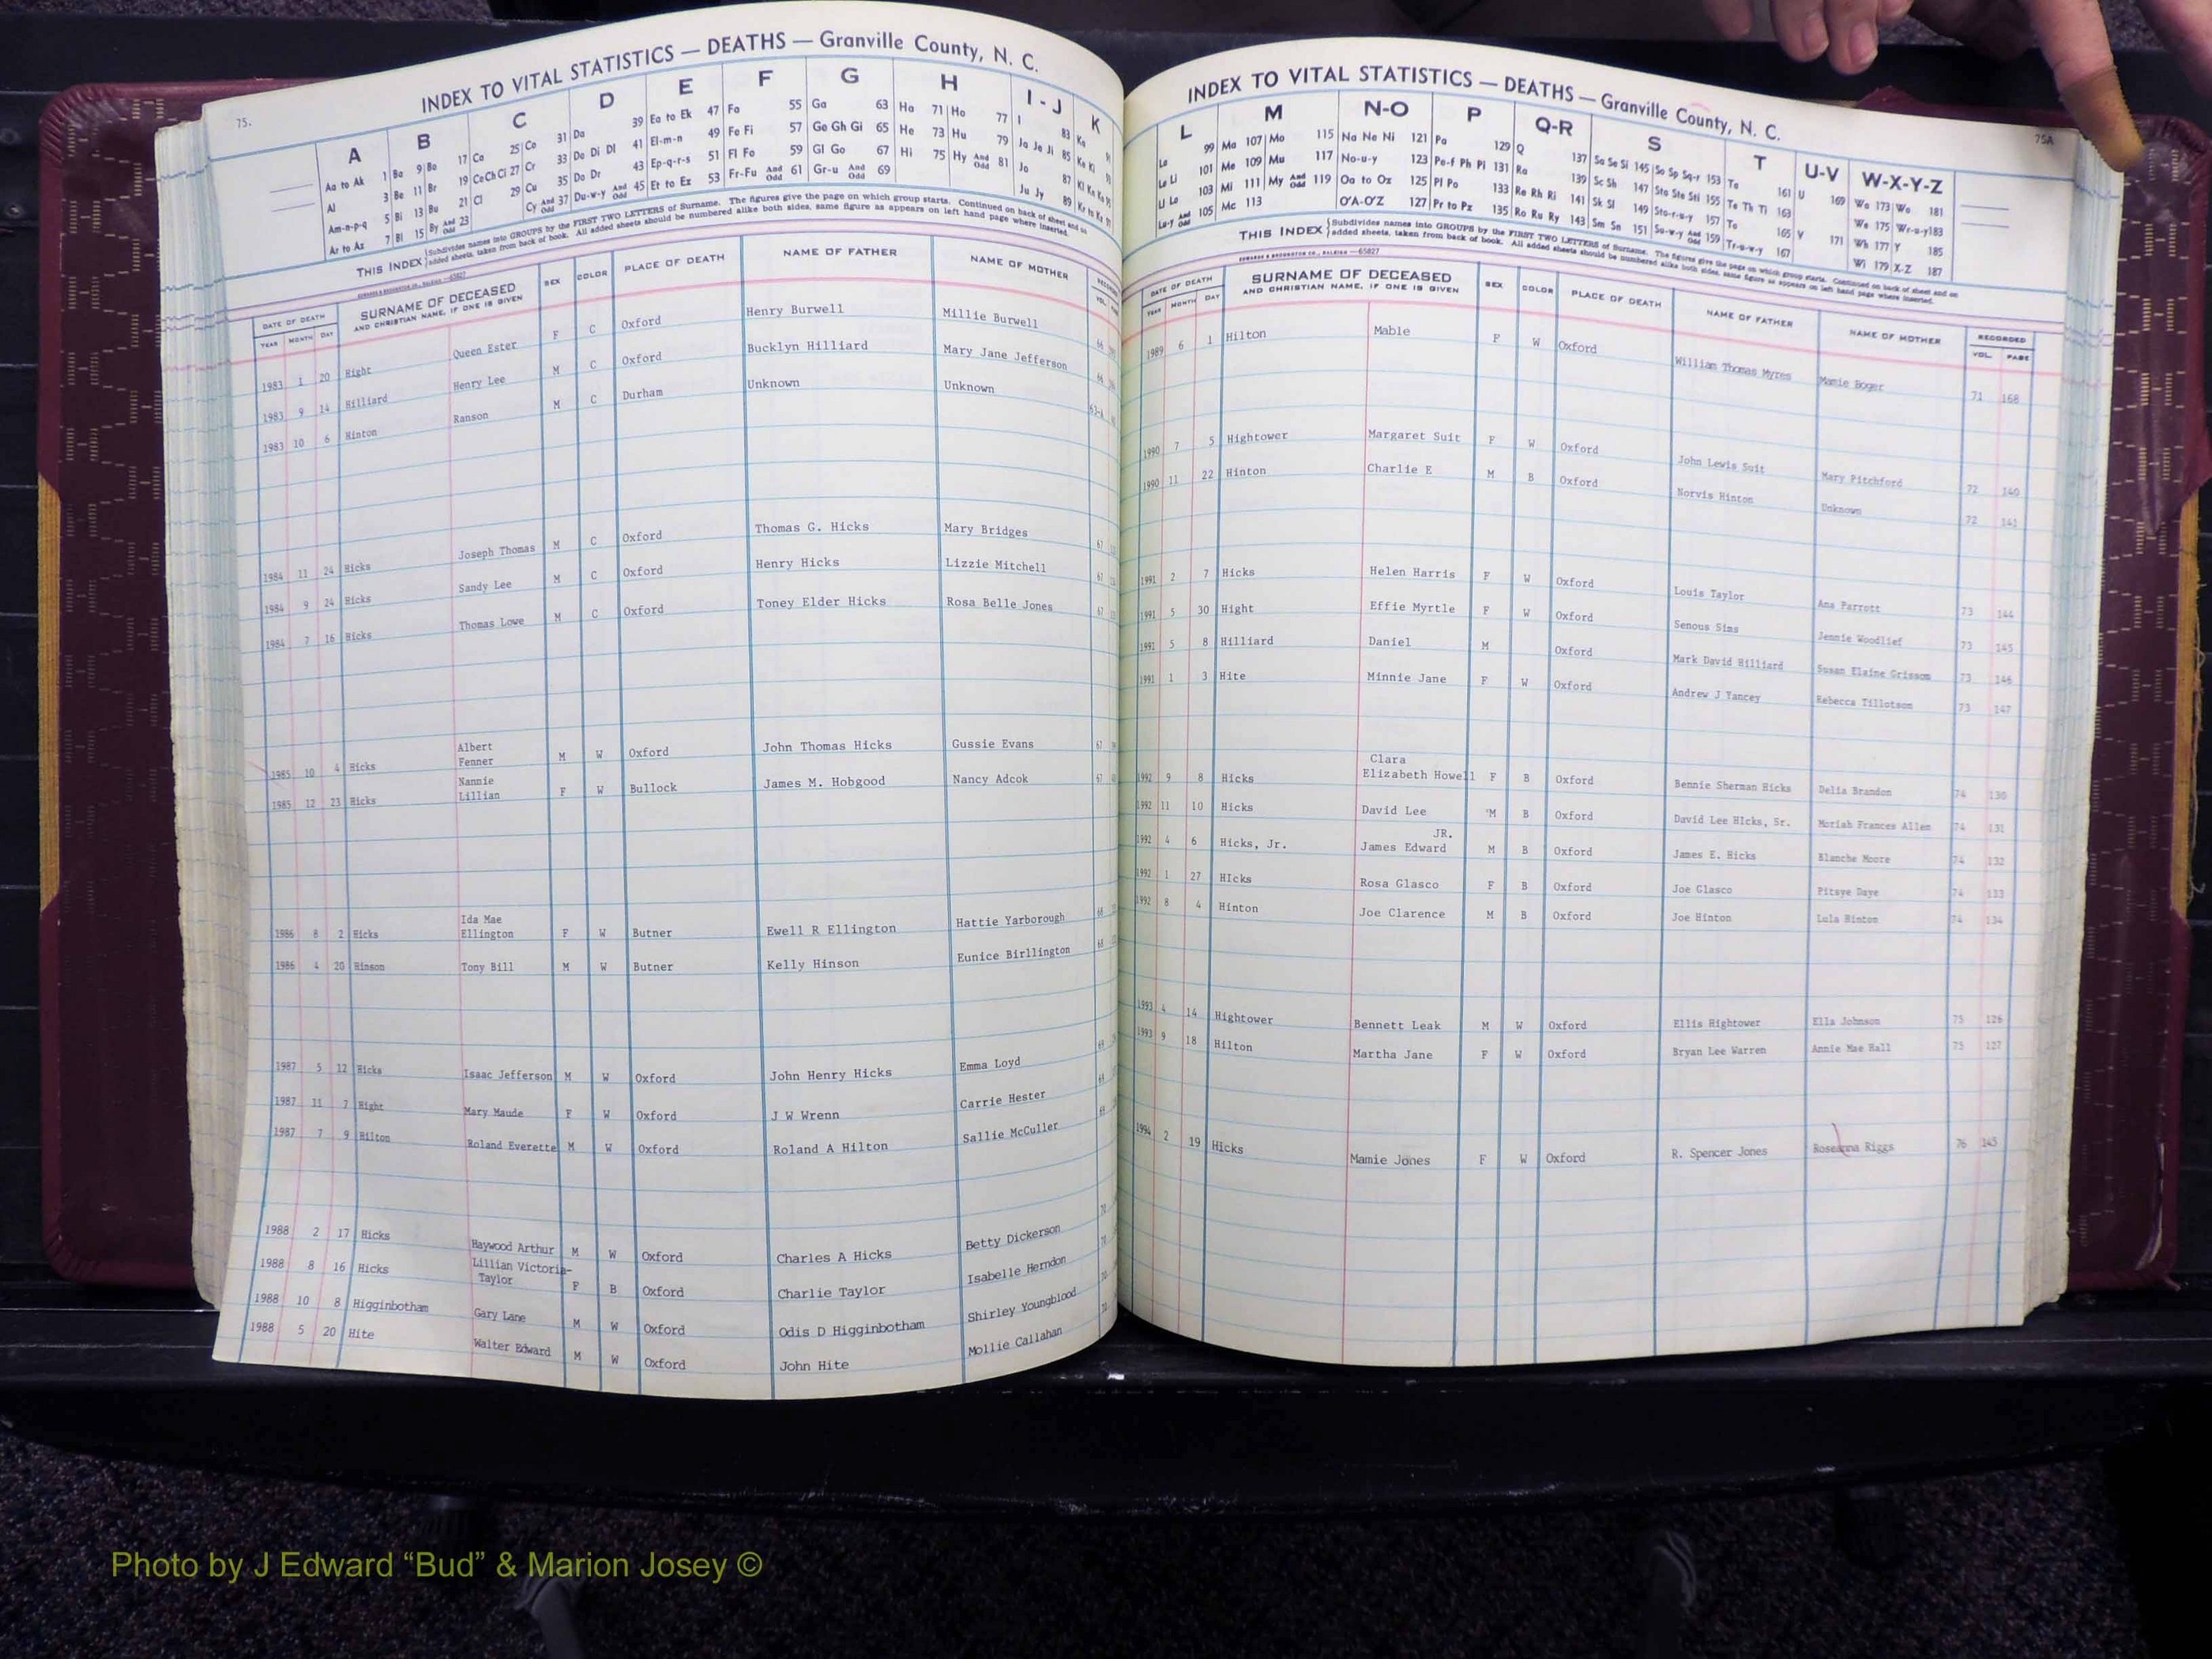 75.
INDEX TO VITAL STATISTICS — DEATHS — Granville County, N. C.
A B C D E F G H I - J K
Aa to Ak 1 Ba 9 Bo 17 Ca 25 Co 31 Da 39 Ea to Ek 47 Fa 55 Ga 63 Ha 71 Ho 77 I 83 Ka
Al 3 Be 11 Br 19 Ce Ch Ci 27 Cr 33 De Di Dl 41 El-m-n 49 Fe Fi 57 Ge Gh Gi 65 He 73 Hu 79 Ja Je Ji 85 Ke Ki
Am-n-p-q 5 Bi 13 Bu 21 Cl 29 Cu 35 Do Dr 43 Ep-q-r-s 51 Fl Fo 59 Gl Go 67 Hi 75 Hy And Odd 81 Jo 87
Ar to Az 7 Bl 15 By And Odd 23 Cy And Odd 37 Du-w-y And Odd 45 Et to Ez 53 Fr-Fu And Odd 61 Gr-u And Odd 69 Ju Jy 89
THIS INDEX Subdivides names into GROUPS by the FIRST TWO LETTERS of Surname. The figures give the page on which group starts. Continued on back of sheet and on
added sheets, taken from back of book. All added sheets should be numbered alike both sides, same figure as appears on left hand page where inserted.
DATE OF DEATH SURNAME OF DECEASED SEX COLOR PLACE OF DEATH NAME OF FATHER NAME OF MOTHER
YEAR MONTH DAY AND CHRISTIAN NAME, IF ONE IS GIVEN
1983 1 20 Hight Queen Ester F C Oxford Henry Burwell Millie Burwell 66
1983 9 14 Hilliard Henry Lee M C Oxford Bucklyn Hilliard Mary Jane Jefferson 66
1983 10 6 Hinton Ranson M C Durham Unknown Unknown
1984 11 24 Hicks Joseph Thomas M C Oxford Thomas G. Hicks Mary Bridges 67
1984 9 24 Hicks Sandy Lee M C Oxford Henry Hicks Lizzie Mitchell 67
1984 7 16 Hicks Thomas Lowe M C Oxford Toney Elder Hicks Rosa Belle Jones 67
Albert
1985 10 4 Hicks Fenner M W Oxford John Thomas Hicks Gussie Evans 67
Nannie
1985 12 23 Hicks Lillian F W Bullock James M. Hobgood Nancy Adcok 67
Ida Mae
1986 8 2 Hicks Ellington F W Butner Ewell R Ellington Hattie Yarborough 68
1986 4 20 Hinson Tony Bill M W Butner Kelly Hinson Eunice Birllington 68
1987 5 12 Hicks Isaac Jefferson M W Oxford John Henry Hicks Emma Loyd 69
1987 11 7 Hight Mary Maude F W Oxford J W Wrenn Carrie Hester 69
1987 7 9 Hilton Roland Everette M W Oxford Roland A Hilton Sallie McCuller 69
1988 2 17 Hicks Haywood Arthur M W Oxford Charles A Hicks Betty Dickerson 70
Lillian Victoria-
1988 8 16 Hicks Taylor F B Oxford Charlie Taylor Isabelle Herndon 70
1988 10 8 Higginbotham Gary Lane M W Oxford Odis D Higginbotham Shirley Youngblood 70
1988 5 20 Hite Walter Edward M W Oxford John Hite Mollie Callahan 70
75A
INDEX TO VITAL STATISTICS — DEATHS — Granville County, N. C.
L M N-O P Q-R S T U-V W-X-Y-Z
La 99 Ma 107 Mo 115 Na Ne Ni 121 Pa 129 Q 137 Sa Se Si 145 So Sp Sq-r 153 Ta 161 U 169 Wa 173 Wo 181
Le Li 101 Me 109 Mu 117 No-u-y 123 Pe-f Ph Pi 131 Ra 139 Sc Sh 147 Sta Ste Sti 155 Te Th Ti 163 We 175 Wr-u-y 183
Ll Lo 103 Mi 111 My And Odd 119 Oa to Oz 125 Pl Po 133 Re Rh Ri 141 Sk Sl 149 Sto-r-u-y 157 To 165 V 171 Wh 177 Y 185
Lu-y And Odd 105 Mc 113 O'A-O'Z 127 Pr to Pz 135 Ro Ru Ry 143 Sm Sn 151 Su-w-y And Odd 159 Tr-u-w-y 167 Wi 179 X-Z 187
THIS INDEX Subdivides names into GROUPS by the FIRST TWO LETTERS of Surname. The figures give the page on which group starts. Continued on back of sheet and on
added sheets, taken from back of book. All added sheets should be numbered alike both sides, same figure as appears on left hand page where inserted.
DATE OF DEATH SURNAME OF DECEASED SEX COLOR PLACE OF DEATH NAME OF FATHER NAME OF MOTHER RECORDED
YEAR MONTH DAY AND CHRISTIAN NAME, IF ONE IS GIVEN VOL. PAGE
1989 6 1 Hilton Mable F W Oxford William Thomas Myres Mamie Boger 71 168
1990 7 5 Hightower Margaret Suit F W Oxford John Lewis Suit Mary Pitchford 72 140
1990 11 22 Hinton Charlie E M B Oxford Norvis Hinton Unknown 72 141
1991 2 7 Hicks Helen Harris F W Oxford Louis Taylor Ana Parrott 73 144
1991 5 30 Hight Effie Myrtle F W Oxford Senous Sims Jennie Woodlief 73 145
1991 5 8 Hilliard Daniel M Oxford Mark David Hilliard Susan Elaine Grissom 73 146
1991 1 3 Hite Minnie Jane F W Oxford Andrew J Yancey Rebecca Tillotson 73 147
Clara
1992 9 8 Hicks Elizabeth Howell F B Oxford Bennie Sherman Hicks Delia Brandon 74 130
1992 11 10 Hicks David Lee M B Oxford David Lee HIcks, Sr. Moriah Frances Allen 74 131
JR.
1992 4 6 Hicks, Jr. James Edward M B Oxford James E. Hicks Blanche Moore 74 132
1992 1 27 HIcks Rosa Glasco F B Oxford Joe Glasco Pitsye Daye 74 133
1992 8 4 Hinton Joe Clarence M B Oxford Joe Hinton Lula Hinton 74 134
1993 4 14 Hightower Bennett Leak M W Oxford Ellis Hightower Ella Johnson 75 126
1993 9 18 Hilton Martha Jane F W Oxford Bryan Lee Warren Annie Mae Hall 75 127
1994 2 19 Hicks Mamie Jones F W Oxford R. Spencer Jones Roseanna Riggs 76 143
Photo by J Edward “Bud” & Marion Josey ©